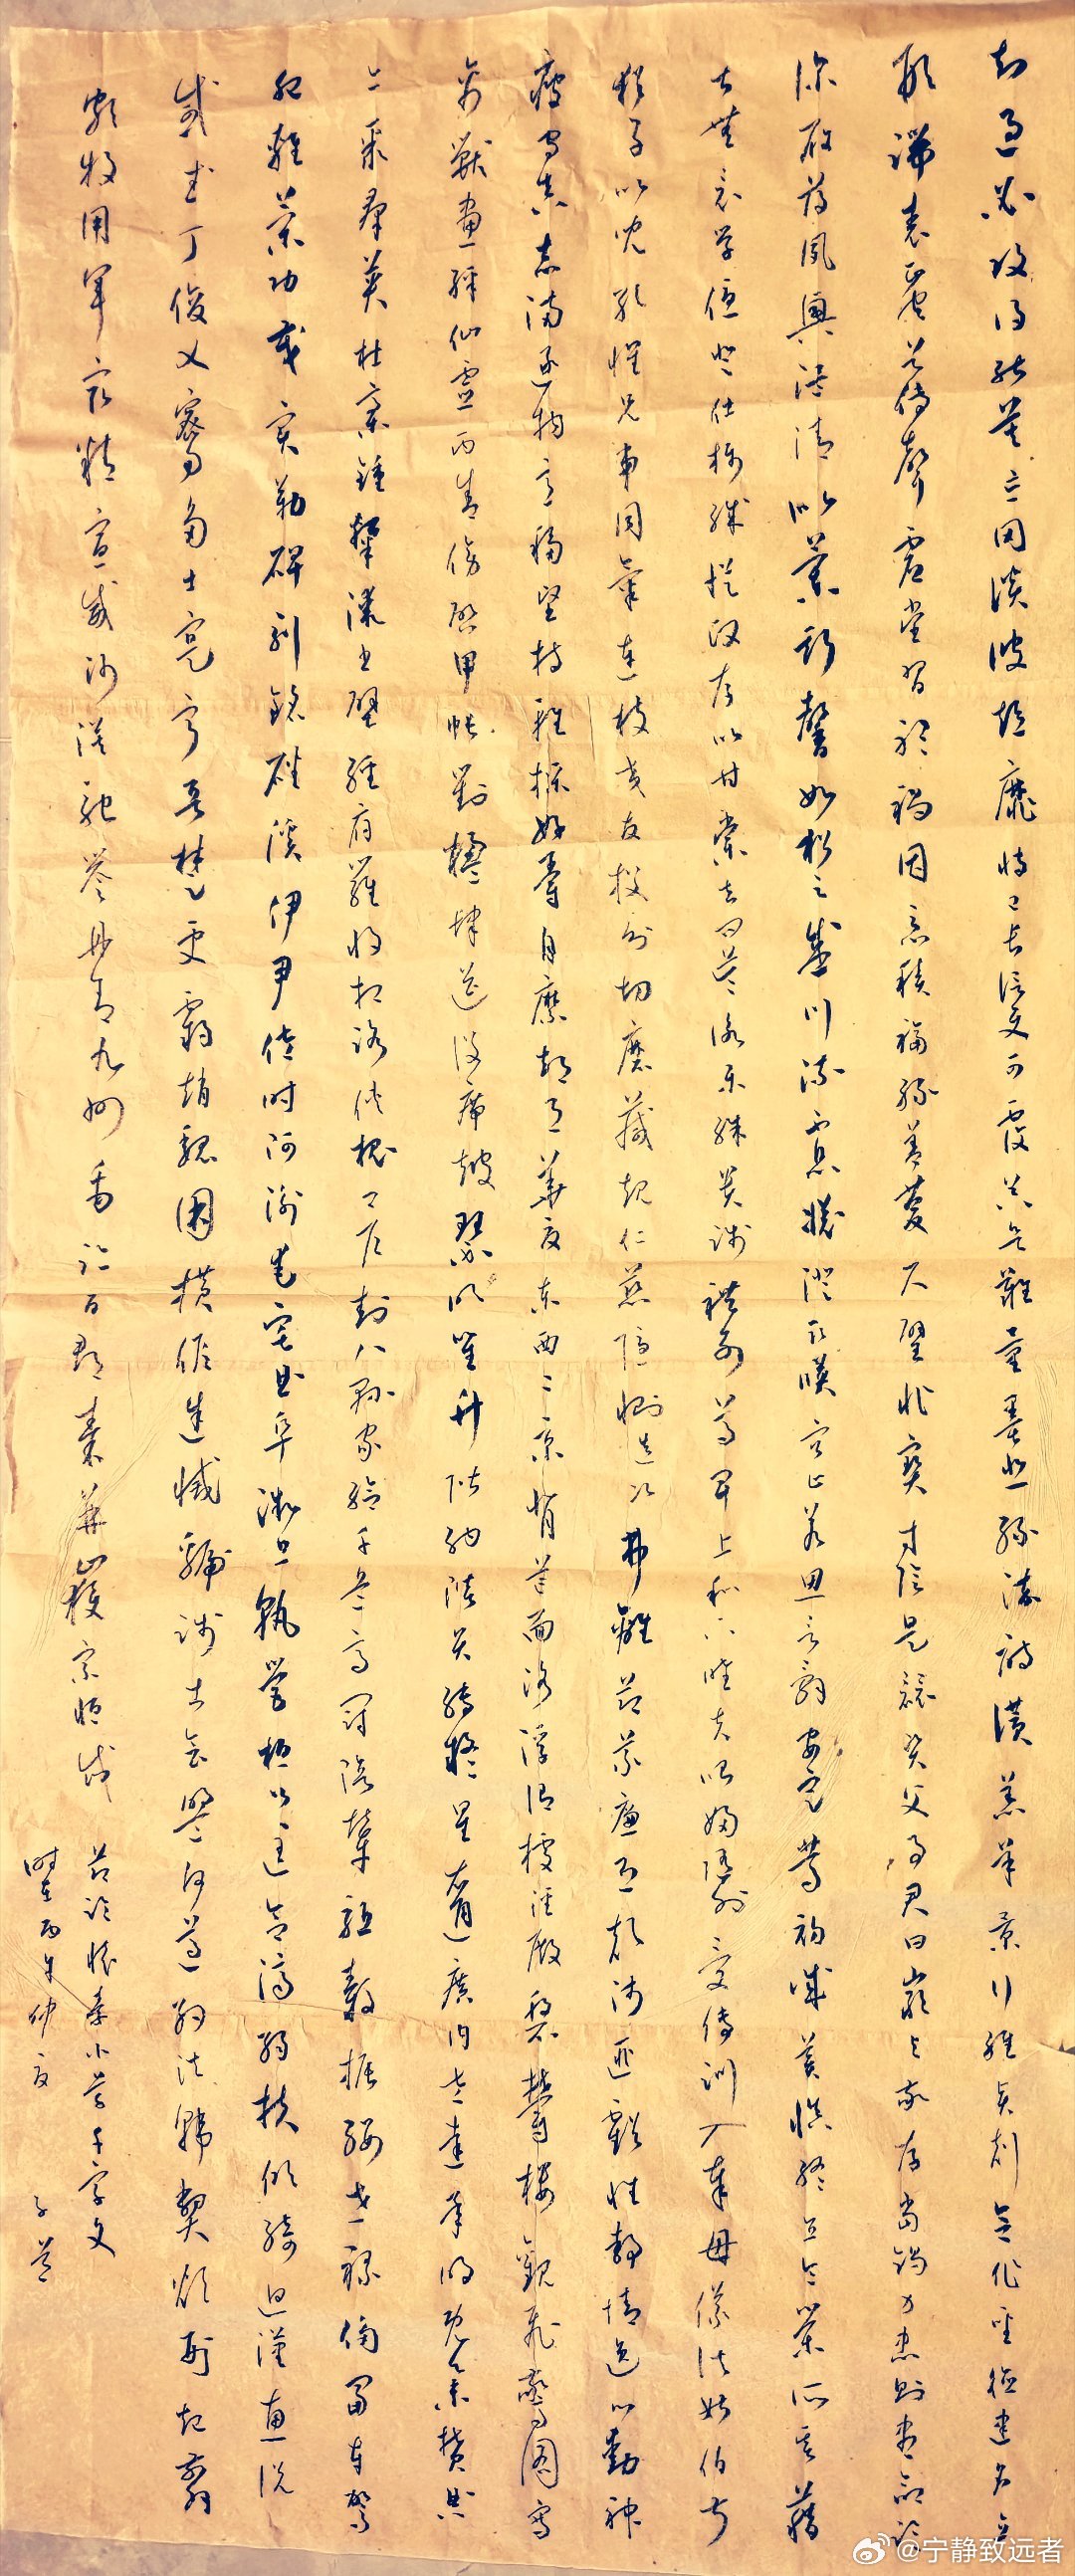 知過必改得能莫忘罔談彼短靡恃己長信使可覆器欲難量墨悲絲染詩讚羔羊景行維賢剋念作聖德建名立
形端表正空谷傳聲虛堂習聽禍因惡積福緣善慶尺璧非寶寸陰是競資父事君曰嚴與敬孝當竭力忠則盡命臨
深履薄夙興溫凊似蘭斯馨如松之盛川流不息淵澄取暎容止若思言辭安定篤初誠美慎終宜令榮業所基藉
甚無竟學優登仕攝職從政存以甘棠去而益詠樂殊貴賤禮別尊卑上和下睦夫唱婦隨外受傅訓入奉母儀諸姑伯叔
猶子比兒孔懷兄弟同氣連枝交友投分切磨箴規仁慈隱惻造次弗離節義廉退顛沛匪虧性靜情逸心動神
疲守真志滿逐物意移堅持雅操好爵自縻都邑華夏東西二京背芒面洛浮渭據涇宮殿盤鬱樓觀飛驚圖寫
禽獸畫綵仙靈丙舍傍啟甲帳對楹肆筵設席鼓瑟吹笙升階納陛弁轉疑星右通廣內左達承明既集墳典
亦聚群英杜稾鍾隸漆書壁經府羅將相路俠槐卿戶封八縣家給千兵高冠陪輦驅轂振纓世祿侈富車駕
肥輕策功茂實勒碑刻銘磻溪伊尹佐時阿衡奄宅曲阜微旦孰營桓公匡合濟弱扶傾綺迴漢惠說
感武丁俊乂密勿多士寔寧晉楚更霸趙魏困橫假途滅虢踐土會盟何遵約法韓弊煩刑起翦
頗牧用軍最精宣威沙漠馳譽丹青九州禹跡百郡秦并嶽宗恆岱
節臨懷素小草千字文
時在丙午仲夏
@宁静致远者